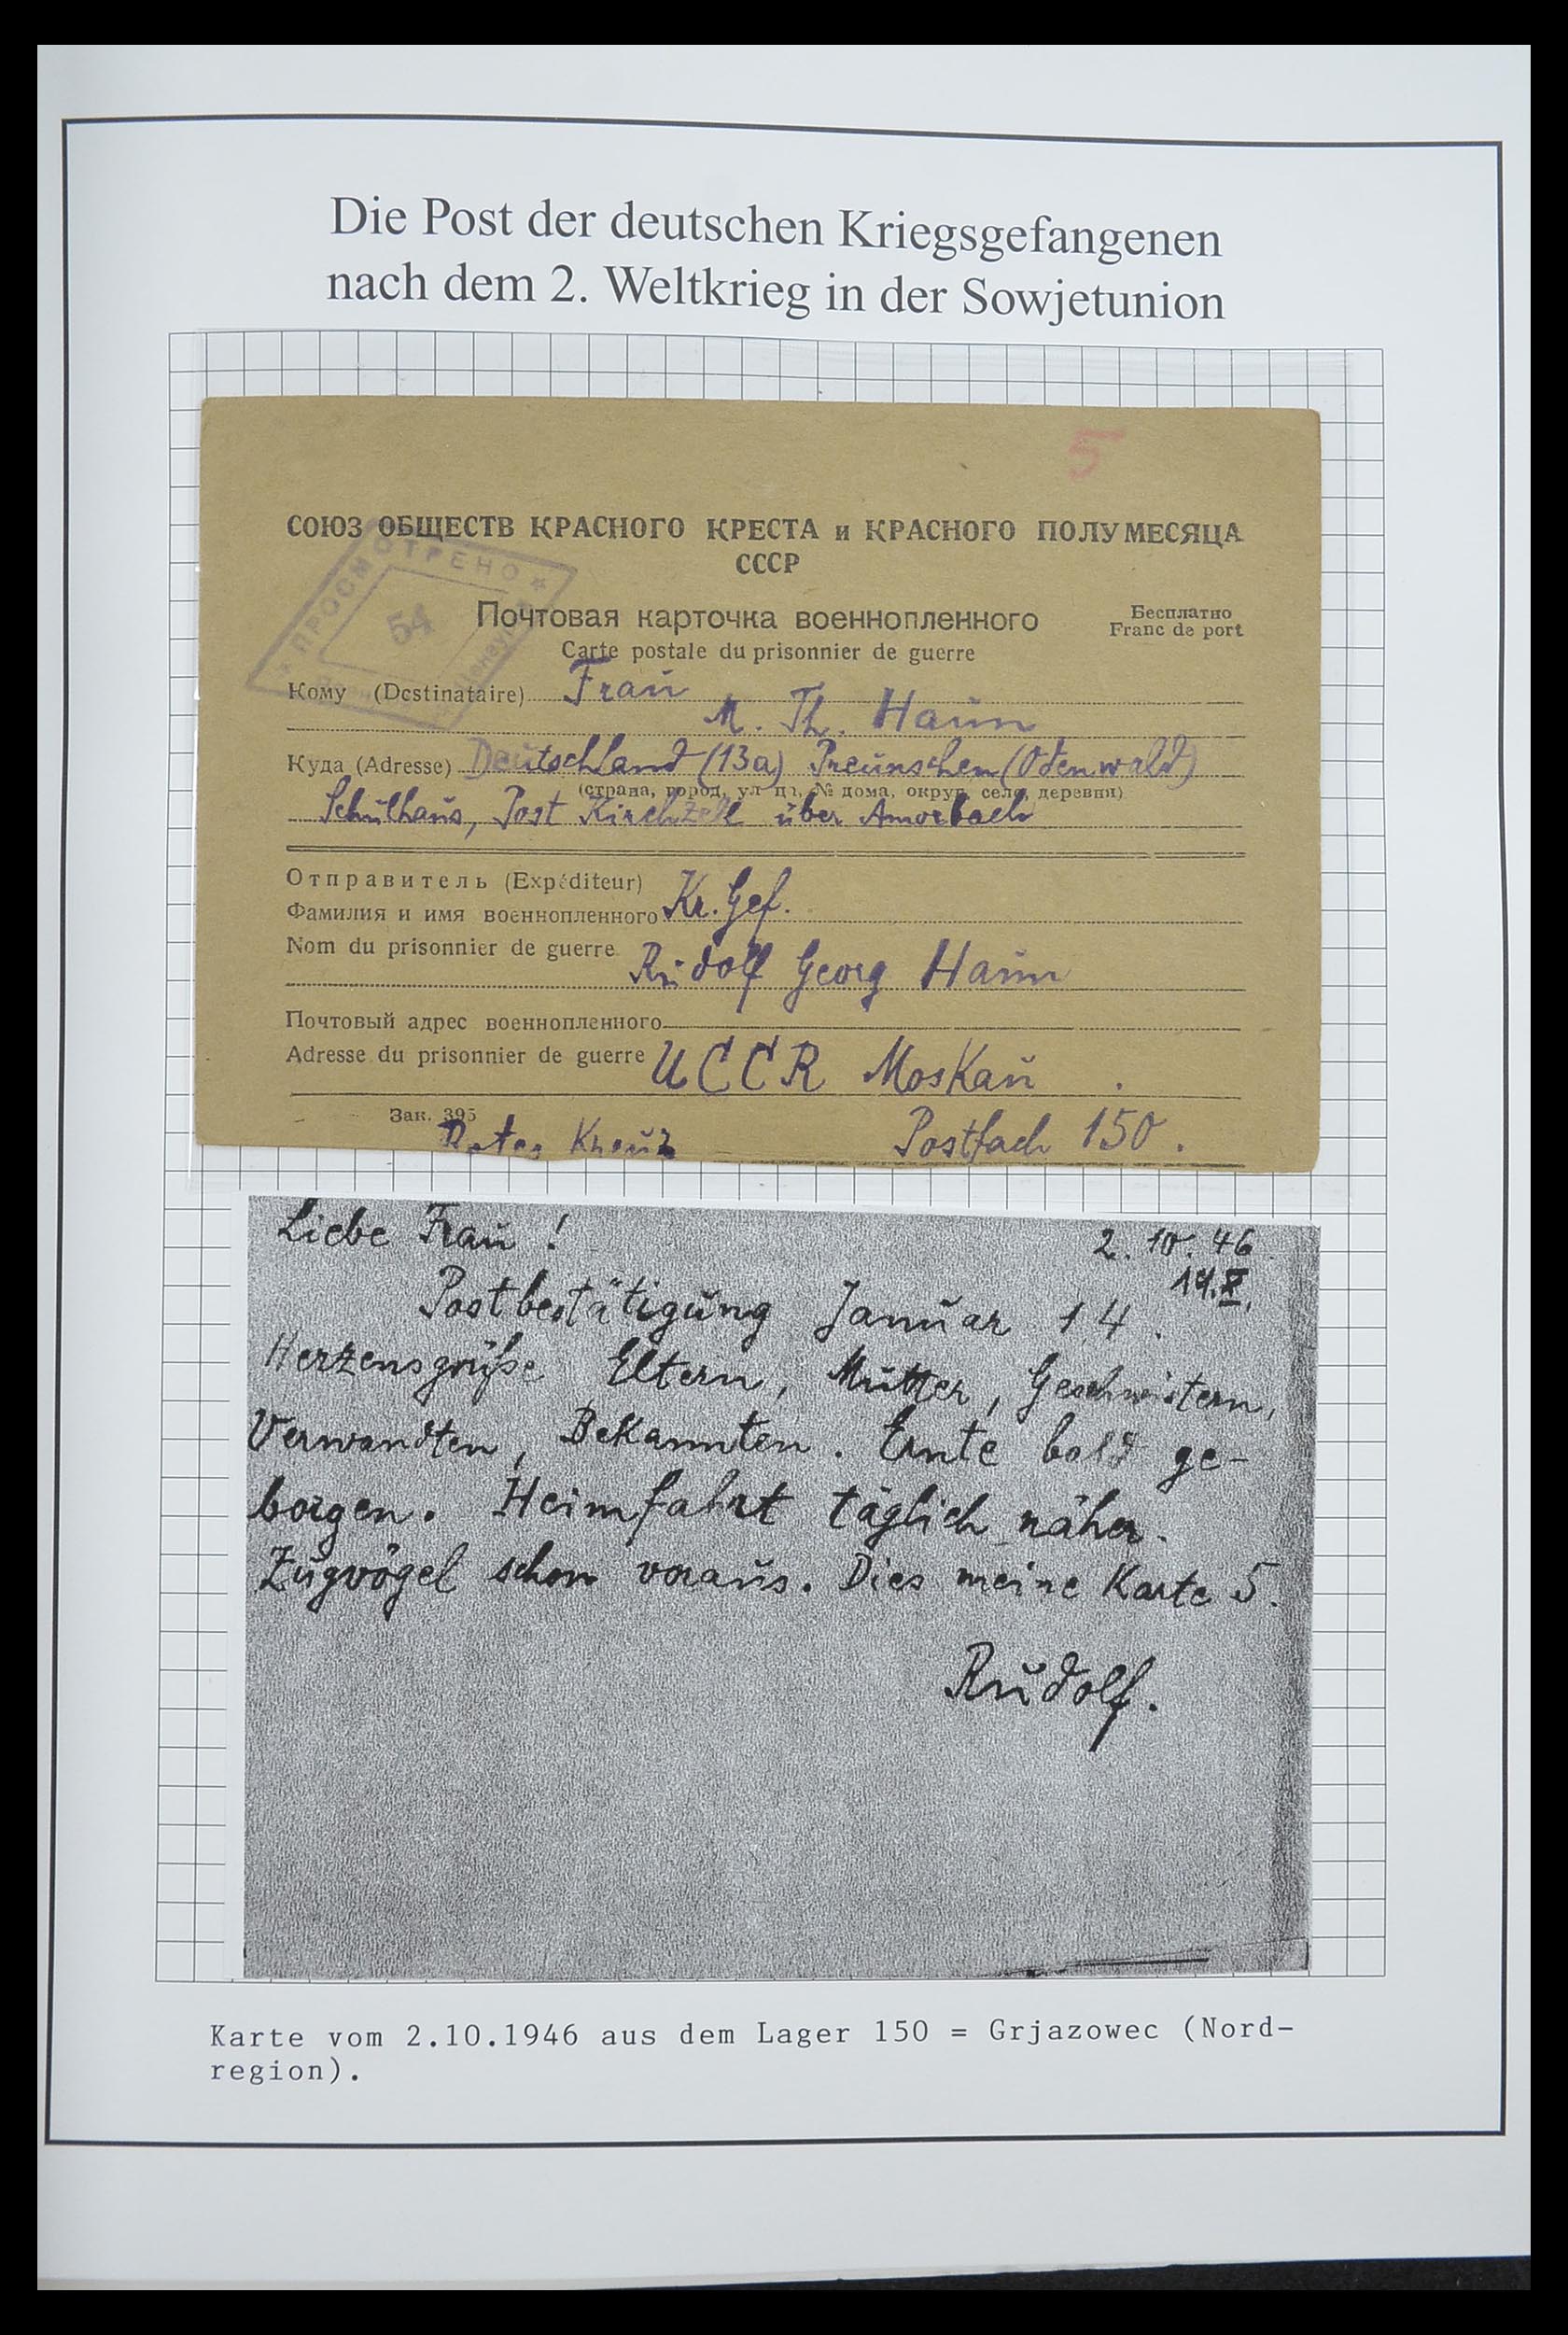 Die Post der deutschen Kriegsgefangenen
nach dem 2. Weltkrieg in der Sowjetunion
5
СОЮЗ ОБЩЕСТВ КРАСНОГО КРЕСТА и КРАСНОГО ПОЛУМЕСЯЦА
СССР
ПРОСМОТРЕНО
54
Почтовая карточка военнопленного
Бесплатно
Franc de port
Carte postale du prisonnier de guerre
Кому (Destinataire) Frau
M. Th. Haun
Куда (Adresse) Deutschland (13a) Preunschen (Odenwald)
(страна, город, улица, № дома, округ, село, деревня)
Schulhaus, Post Kirchzell über Amorbach
Отправитель (Expéditeur)
Фамилия и имя военнопленного Kr. Gef.
Nom du prisonnier de guerre
Rudolf Georg Haun
Почтовый адрес военнопленного
Adresse du prisonnier de guerre UCCR Moskau
Зак. 395
Rotes Kreuz Postfach 150.
Liebe Frau! 2. 10. 46.
14.X.
Postbestätigung Januar 14.
Herzensgrüße Eltern, Mutter, Geschwistern,
Verwandten, Bekannten. Ernte bald ge-
borgen. Heimfahrt täglich näher.
Zugvögel schon voraus. Dies meine Karte 5.
Rudolf.
Karte vom 2.10.1946 aus dem Lager 150 = Grjazowec (Nord-
region).